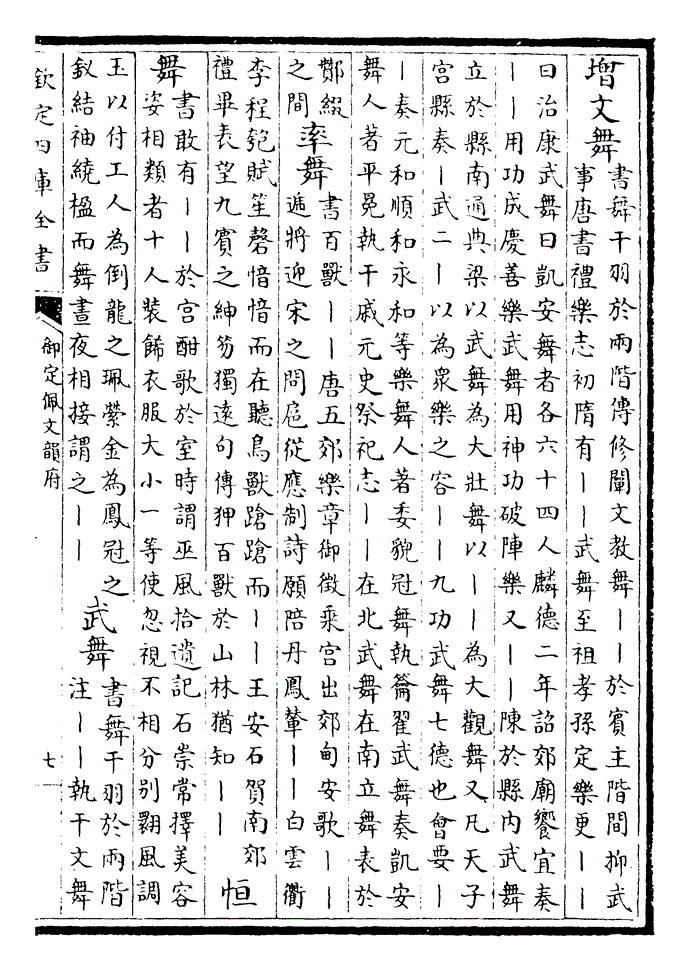 增文舞
書舞干羽於兩階傳修闡文教舞丨丨於賓主階間抑武
事唐書禮樂志初隋有丨丨武舞至祖孝孫定樂更丨丨
曰治康武舞曰凱安舞者各六十四人麟德二年詔郊廟饗宜奏
丨丨用功成慶善樂武舞用神功破陣樂又丨丨陳於縣内武舞
立於縣南通典梁以武舞為大壯舞以丨丨為大觀舞又凡天子
宮縣奏丨武二丨以為眾樂之容丨丨九功武舞七德也會要丨
丨奏元和順和永和等樂舞人著委貌冠舞執籥翟武舞奏凱安
舞人著平冕執干戚元史祭祀志丨丨在北武舞在南立舞表於
酇綴
之間
率舞
書百獸丨丨唐五郊樂章御徵乘宮出郊甸安歌丨丨
遞將迎宋之問扈從應制詩願陪丹鳳輦丨丨白雲衢
李程匏賦笙磬愔愔而在聽鳥獸蹌蹌而丨丨王安石賀南郊
禮畢表望九賓之紳笏獨遠句傳狎百獸於山林猶知丨丨
恒
舞
書敢有丨丨於宮酣歌於室時謂巫風拾遺記石崇常擇美容
姿相類者十人裝飾衣服大小一等使忽視不相分別翾風調
玉以付工人為倒龍之珮縈金為鳳冠之
釵結袖繞楹而舞晝夜相接謂之丨丨
武舞
書舞干羽於兩階
注丨丨執干文舞
欽定四庫全書
御定佩文韻府
七